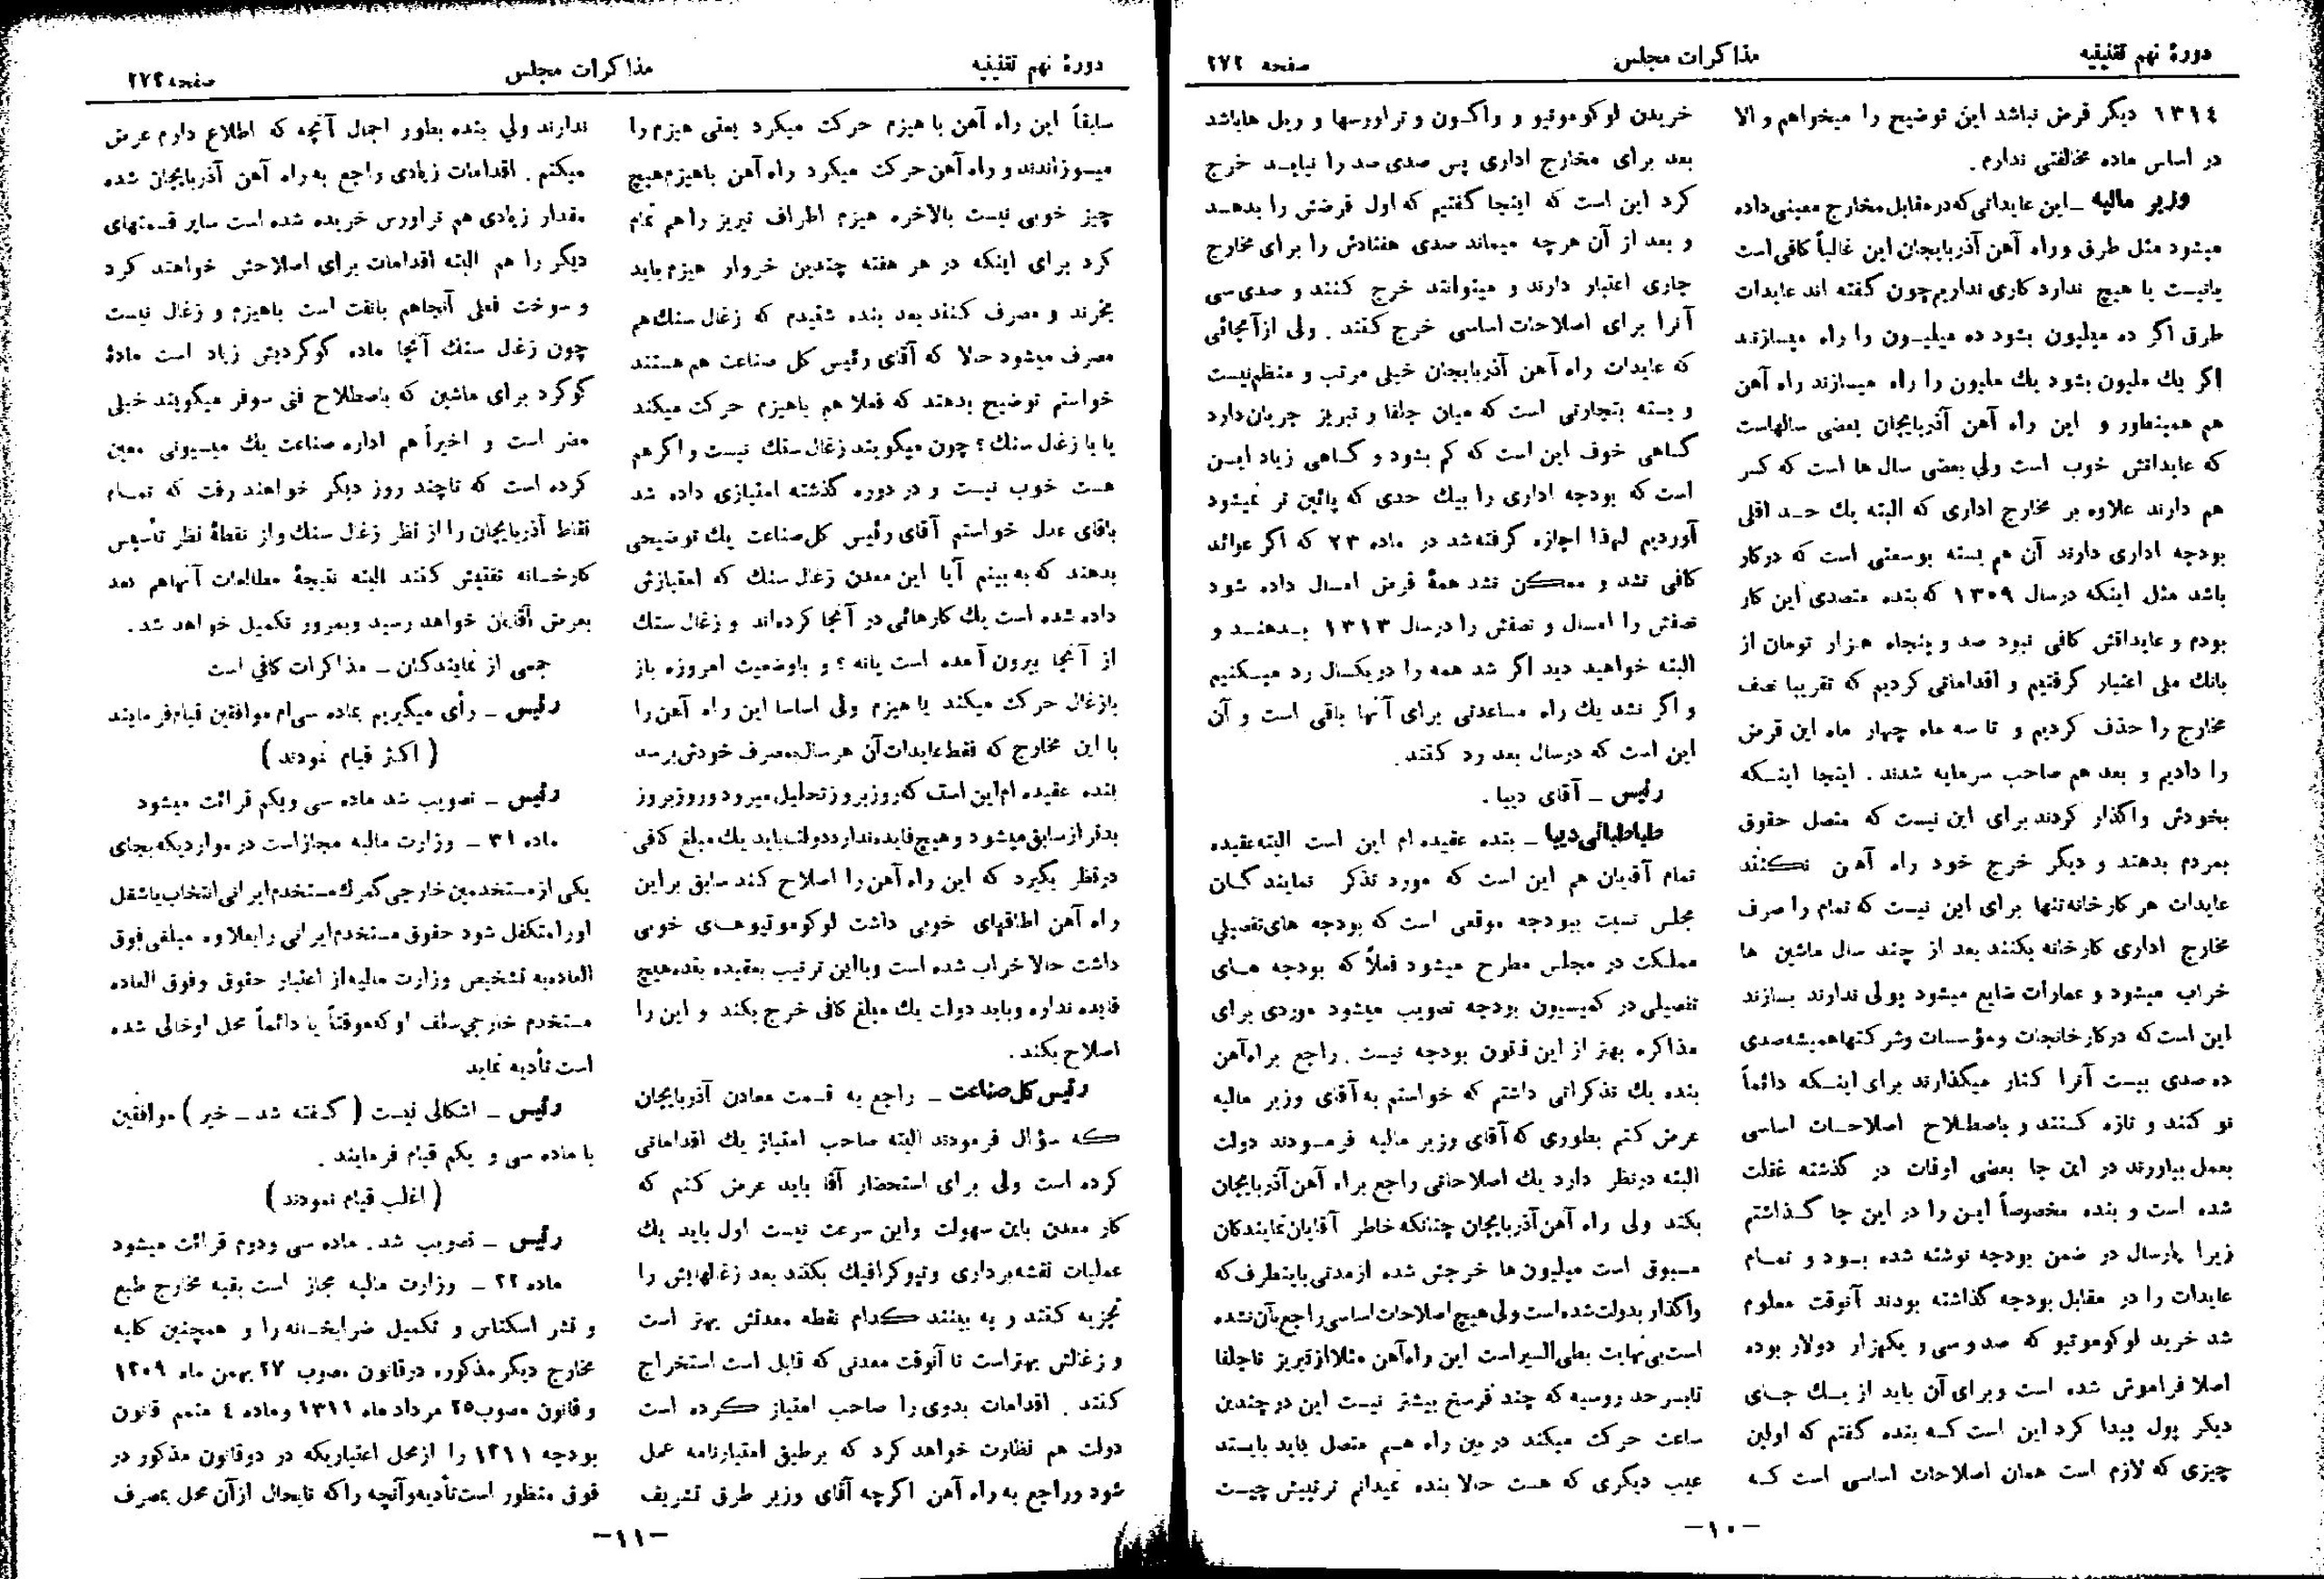 دورهٔ نهم تقنینیه
مذاکرات مجلس
صفحه ۲۷۲
۱۳۱٤ دیگر قرض نباشد این توضیح را میخواهم والا
در اساس ماده مخالفتی ندارم.
وزیر مالیه ـ این عایداتی که در مقابل مخارج معینی داده
میشود مثل طرق و راه آهن آذربایجان این غالباً کافی است
یا نیست یا هیچ ندارد کاری نداریم چون گفته اند عایدات
طرق اگر ده میلیون بشود ده میلیـون را راه میسازنـد
اگر یك ملیون بشود یك ملیون را راه میسازند راه آهن
هم همینطور و این راه آهن آذربایجان بعضی سالهاست
که عایداتش خوب است ولی بعضی سال ها است که کسر
هم دارند علاوه بر مخارج اداری که البته یك حـد اقلی
بودجه اداری دارند آن هم بسته بوسعتی است که درکار
باشد مثل اینکه در سال ۱۳۰۹ که بنده متصدی این کار
بودم و عایداتش کافی نبود صد و پنجاه هـزار تومان از
بانك ملی اعتبار گرفتیم و اقداماتی کردیم که تقریبا نصف
مخارج را حذف کردیم و تا سه ماه چهار ماه این قرض
را دادیم و بعد هم صاحب سرمایه شدند. اینجا اینـکه
بخودش واگذار کردند برای این نیست که متصل حقوق
بمردم بدهند و دیگر خرج خود راه آهن نکنند
عایدات هر کارخانه تنها برای این نیست که تمام را صرف
مخارج اداری کارخانه بکنند بعد از چند سال ماشین ها
خراب میشود و عمارات ضایع میشود پولی ندارند بسازند
این است که در کارخانجات و مؤسسات و شرکتها همیشه صدی
ده صدی بیست آنرا کنار میگذارند برای اینـکه دائماً
نو کنند و تازه کـنند و باصطـلاح اصلاحـات اساسی
بعمل بیاورند در این جا بعضی اوقات در گذشته غفلت
شده است و بنده مخصوصاً ایـن را در این جا گـذاشتم
زیرا پارسال در ضمن بودجه نوشته شده بـود و تمـام
عایدات را در مقابل بودجه گذاشته بودند آنوقت معلوم
شد خرید لوکوموتیو که صد و سی و یکهزار دولار بوده
اصلا فراموش شده است و برای آن باید از یـك جـای
دیگر پول پیدا کرد این است کـه بنده گفتم که اولین
چیزی که لازم است همان اصلاحات اساسی است کـه
خریدن لوکوموتیو و واگـون و تراورسها و ریل ها باشد
بعد برای مخارج اداری پس صدی صد را نبایـد خرج
کرد این است که اینجا گفتیم که اول قرضش را بدهـد
و بعد از آن هرچه میماند صدی هفتادش را برای مخارج
جاری اعتبار دارند و میتوانند خرج کنند و صدی سی
آنرا برای اصلاحات اساسی خرج کنند. ولی از آنجائی
که عایدات راه آهن آذربایجان خیلی مرتب و منظم نیست
و بسته بتجارتی است که میان جلفا و تبریز جریان دارد
گـاهی خوف این است که کم بشود و گـاهی زیاد ایـن
است که بودجه اداری را بیك حدی که پائین تر نمیشود
آوردیم لهذا اجازه گرفته شد در ماده ۲۳ که اگر عوائد
کافی نشد و ممکن نشد همهٔ قرض امسال داده شود
نصفش را امسال و نصفش را در سال ۱۳۱۳ بـدهنـد و
البته خواهید دید اگر شد همه را در یکسال رد میـکنیم
و اگر نشد یك راه مساعدتی برای آنها باقی است و آن
این است که در سال بعد رد کنند.
رئیس ـ آقای دیبا.
طباطبائی دیبا ـ بنده عقیده ام این است البته عقیده
تمام آقایان هم این است که مورد تذکر نمایندگـان
مجلس نسبت ببودجه موقعی است که بودجه های تفصیلی
مملکت در مجلس مطرح میشود فعلاً که بودجه هـای
تفصیلی در کمیسیون بودجه تصویب میشود موردی برای
مذاکره بهتر از این قانون بودجه نیست. راجع براه آهن
بنده یك تذکراتی داشتم که خواستم به آقای وزیر مالیه
عرض کنم بطوری که آقای وزیر مالیه فرمـودند دولت
البته در نظر دارد یك اصلاحاتی راجع براه آهن آذربایجان
بکند ولی راه آهن آذربایجان چنانکه خاطر آقایان نمایندگان
مسبوق است میلیون ها خرجش شده از مدتی باینطرف که
واگذار بدولت شده است ولی هیچ اصلاحات اساسی راجع بآن نشده
است بی نهایت بطی السیر است این راه آهن مثلا از تبریز تا جلفا
تا سرحد روسیه که چند فرسخ بیشتر نیست این در چندین
ساعت حرکت میکند در بین راه هـم متصل باید بایستد
عیب دیگری که هست حالا بنده نمیدانم ترتیبش چیـست
ـ۱۰ـ
دورهٔ نهم تقنینیه
مذاکرات مجلس
صفحه ۲۷۳
سابقاً این راه آهن با هیزم حرکت میکرد یعنی هیزم را
میسوزاندند و راه آهن حرکت میکرد راه آهن با هیزم هیچ
چیز خوبی نیست بالاخره هیزم اطراف تبریز را هم تمام
کرد برای اینکه در هر هفته چندین خروار هیزم باید
بخرند و مصرف کنند بعد بنده شنیدم که زغال سنك هم
مصرف میشود حالا که آقای رئیس کل صناعت هم هستند
خواستم توضیح بدهند که فعلا هم با هیزم حرکت میکند
یا با زغال سنك؟ چون میگویند زغال سنك نیست و اگر هم
هست خوب نیست و در دوره گذشته امتیازی داده شد
باقای عدل خواستم آقای رئیس کل صناعت یك توضیحی
بدهند که به بینم آیا این معدن زغال سنك که امتیازش
داده شده است یك کارهائی در آنجا کرده‌اند و زغال سنك
از آنجا بیرون آمده است یا نه؟ و با وضعیت امروزه باز
با زغال حرکت میکند یا هیزم ولی اساسا این راه آهن را
با این مخارج که فقط عایدات آن هر سال بمصرف خودش برسد
بنده عقیده ام این است که روز بروز تحلیل میرود و روز بروز
بدتر از سابق میشود و هیچ فایده ندارد دولت باید یك مبلغ کافی
در نظر بگیرد که این راه آهن را اصلاح کند سابق بر این
راه آهن اطاقهای خوبی داشت لوکوموتیو هـای خوبی
داشت حالا خراب شده است و با این ترتیب بعقیده بنده هیچ
فایده ندارد و باید دولت یك مبلغ کافی خرج بکند و این را
اصلاح بکند.
رئیس کل صناعت ـ راجع به قسمت معادن آذربایجان
کـه سؤال فرمودند البته صاحب امتیاز یك اقداماتی
کرده است ولی برای استحضار آقا باید عرض کنم که
کار معدن باین سهولت و این سرعت نیست اول باید یك
عملیات نقشه برداری و تپوگرافیك بکنند بعد زغالهایش را
تجزیه کنند و به بینند کدام نقطه معدنش بهتر است
و زغالش بهتر است تا آنوقت معدنی که قابل است استخراج
کنند. اقدامات بدوی را صاحب امتیاز کرده است
دولت هم نظارت خواهد کرد که برطبق امتیازنامه عمل
شود و راجع به راه آهن اگرچه آقای وزیر طرق تشریف
ندارند ولی بنده بطور اجمال آنچه که اطلاع دارم عرض
میکنم. اقدامات زیادی راجع به راه آهن آذربایجان شده
مقدار زیادی هم تراورس خریده شده است سایر قسمتهای
دیگر را هم البته اقدامات برای اصلاحش خواهند کرد
و سوخت فعلی آنجا هم با نفت است با هیزم و زغال نیست
چون زغال سنك آنجا ماده گوگردیش زیاد است مادهٔ
گوگرد برای ماشین که باصطلاح فنی سوفر میگویند خیلی
مضر است و اخیراً هم اداره صناعت یك میسیونی معین
کرده است که تا چند روز دیگر خواهند رفت که تمـام
نقاط آذربایجان را از نظر زغال سنك و از نقطهٔ نظر تأسیس
کارخـانه تفتیش کنند البته نتیجهٔ مطالعات آنها هم بعد
بعرض آقایان خواهد رسید و بمرور تکمیل خواهد شد.
جمعی از نمایندگان ـ مذاکرات کافی است
رئیس ـ رأی میگیریم بماده سی‌ام موافقین قیام فرمایند
( اکثر قیام نمودند )
رئیس ـ تصویب شد ماده سی و یکم قرائت میشود
ماده ۳۱ ـ وزارت مالیه مجاز است در مواردیکه بجای
یکی از مستخدمین خارجی گمرك مستخدم ایرانی انتخاب یا شغل
او را متکفل شود حقوق مستخدم ایرانی را بعلاوه مبلغی فوق
العاده به تشخیص وزارت مالیه از اعتبار حقوق و فوق العاده
مستخدم خارجی سلف او که موقتاً یا دائماً محل او خالی شده
است تأدیه نماید
رئیس ـ اشکالی نیست ( گـفته شد ـ خیر ) موافقین
با ماده سی و یکم قیام فرمایند.
( اغلب قیام نمودند )
رئیس ـ تصویب شد. ماده سی و دوم قرائت میشود
ماده ۳۲ ـ وزارت مالیه مجاز است بقیه مخارج طبع
و نشر اسکناس و تکمیل ضرابخـانه را و همچنین کلیه
مخارج دیگر مذکوره در قانون مصوب ۲۷ بهمن ماه ۱۳۰۹
و قانون مصوب ۲۵ مرداد ماه ۱۳۱۱ و ماده ٤ متمم قانون
بودجه ۱۳۱۱ را از محل اعتباریکه در دو قانون مذکور در
فوق منظور است تأدیه و آنچه را که تا بحال از آن محل بمصرف
ـ۱۱ـ